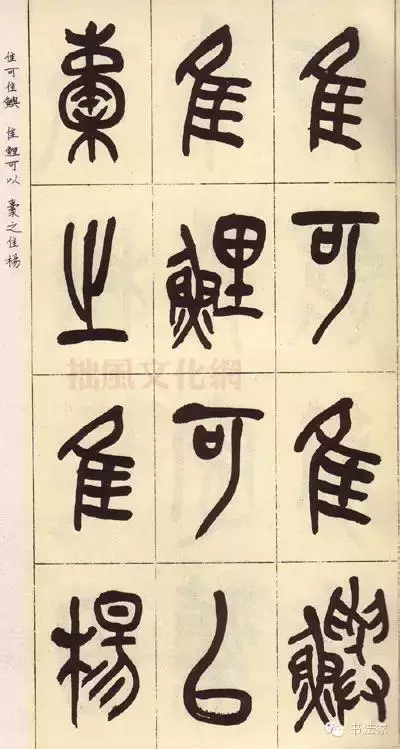 隹可隹鱮
隹鯉可以
橐之隹楊
隹可隹鱮 隹鯉可以 橐之隹楊
拙風文化網
书法家